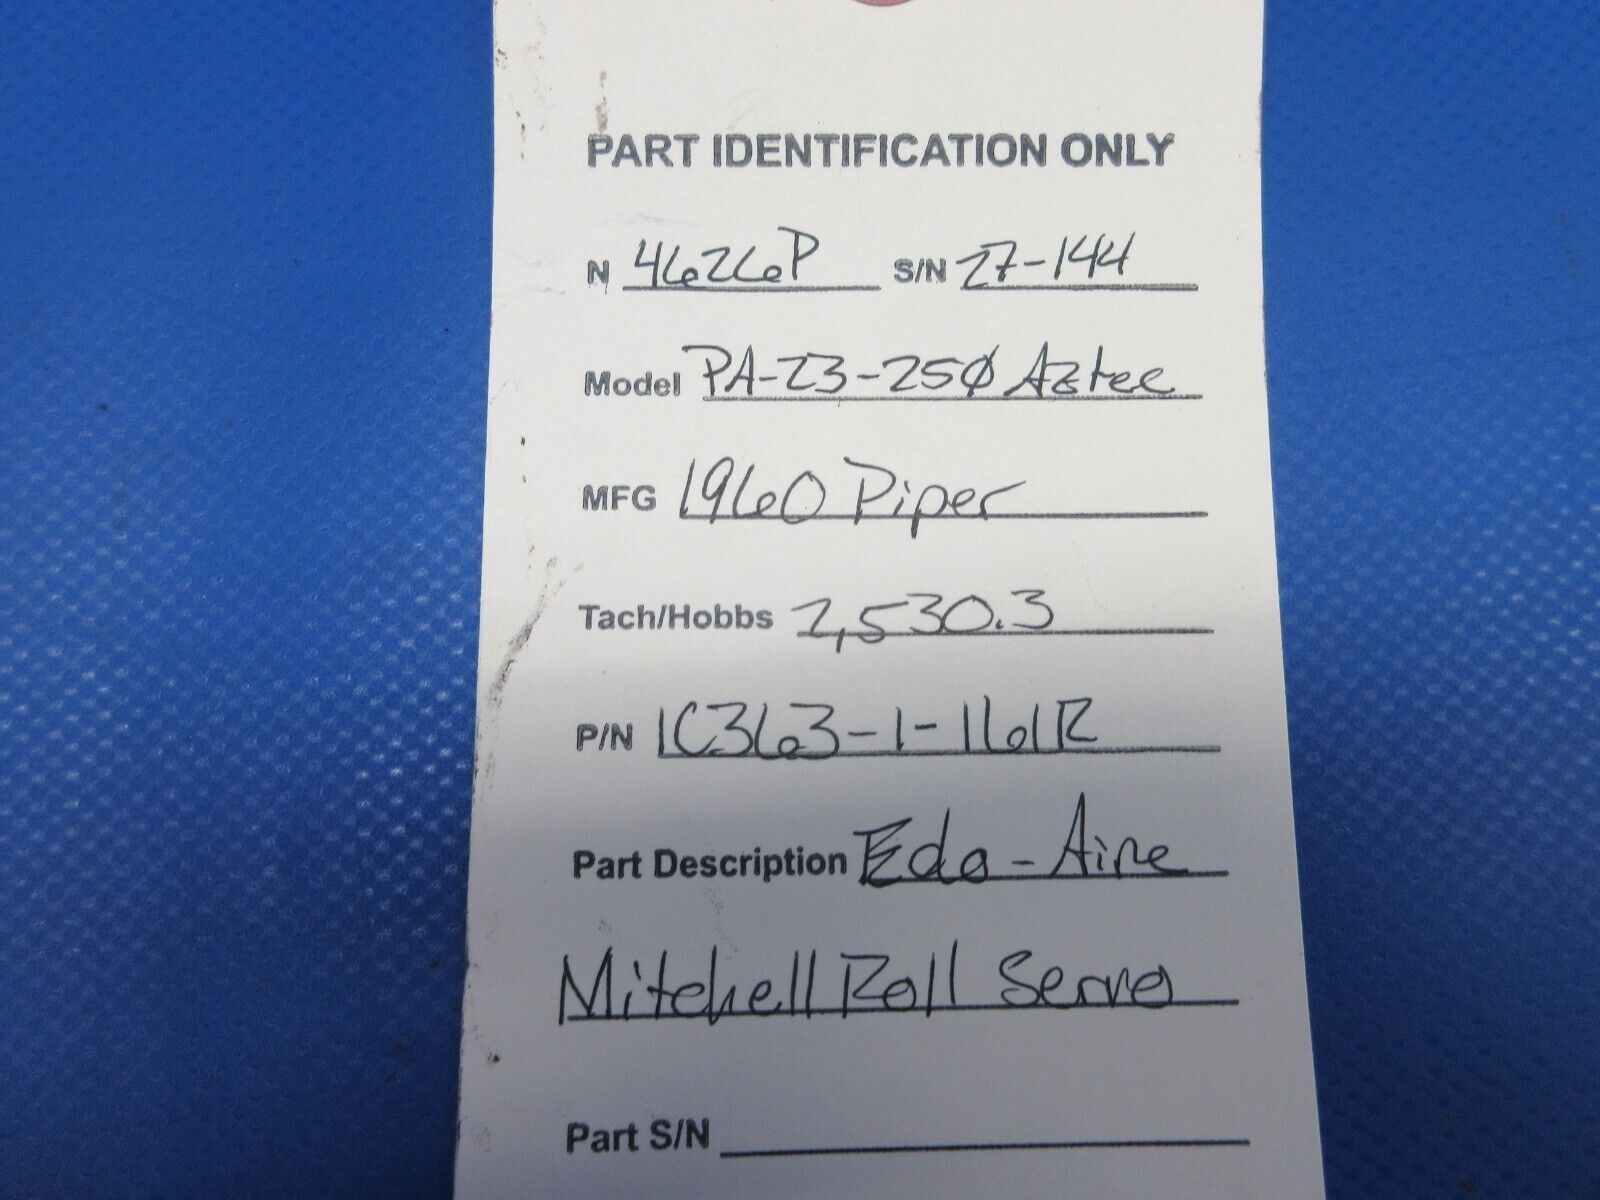 PART IDENTIFICATION ONLY
N 4626P S/N 27-144
Model PA-23-250 Aztec
MFG 1960 Piper
Tach/Hobbs 2,530.3
P/N 1C363-1-161R
Part Description Edo-Aire
Mitchell Roll Servo
Part S/N